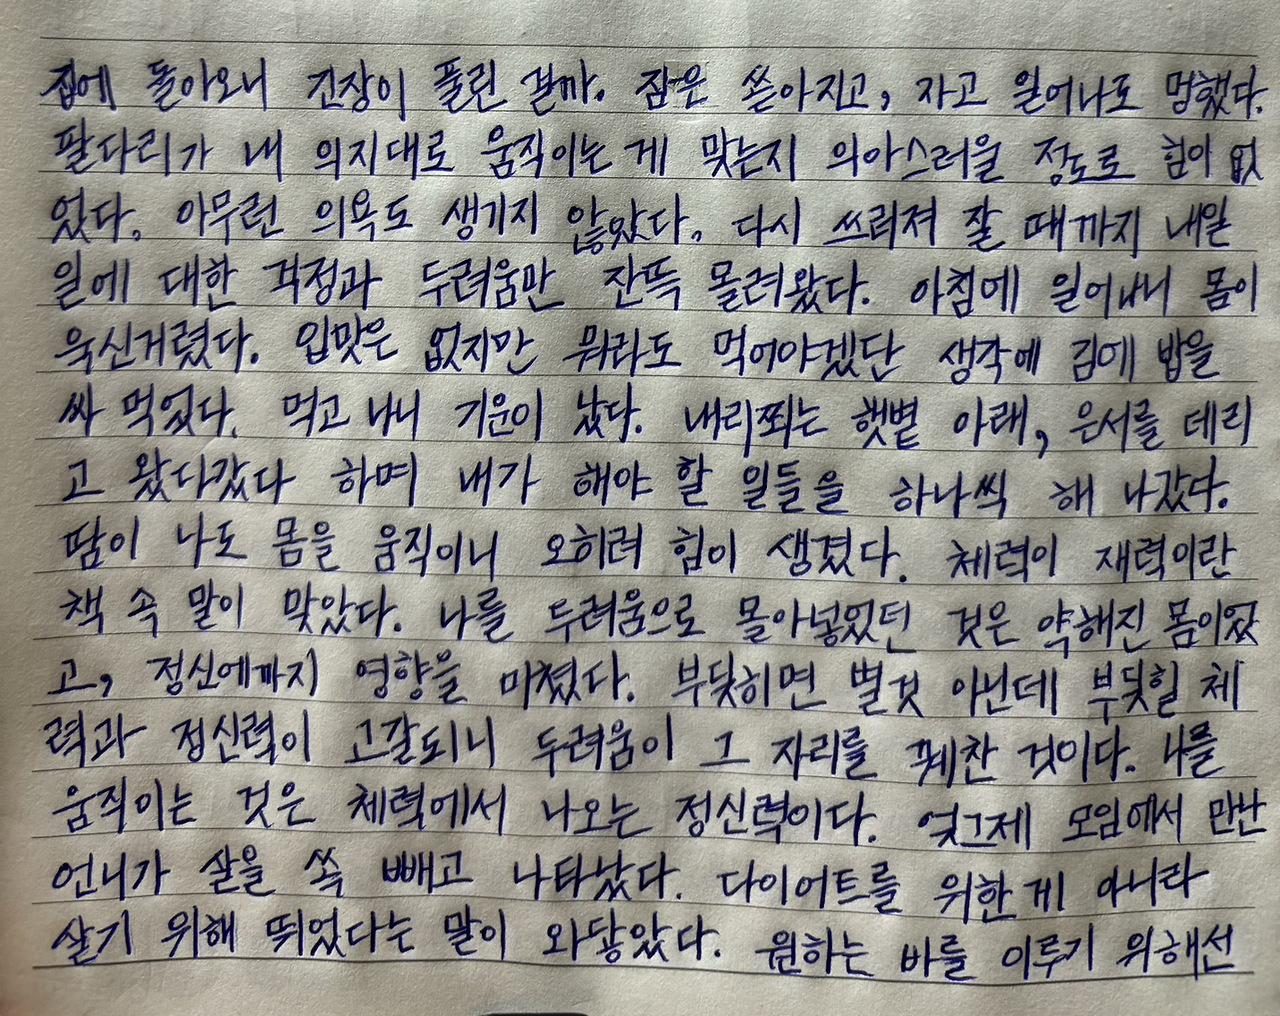 집에 돌아오니 긴장이 풀린 걸까. 잠은 쏟아지고, 자고 일어나도 멍했다.
팔다리가 내 의지대로 움직이는 게 맞는지 의아스러울 정도로 힘이 없
었다. 아무런 의욕도 생기지 않았다. 다시 쓰러져 잘 때까지 내일
일에 대한 걱정과 두려움만 잔뜩 몰려왔다. 아침에 일어나니 몸이
욱신거렸다. 입맛은 없지만 뭐라도 먹어야겠단 생각에 김에 밥을
싸 먹었다. 먹고 나니 기운이 났다. 내리쬐는 햇볕 아래, 은서를 데리
고 왔다갔다 하며 내가 해야 할 일들을 하나씩 해 나갔다.
땀이 나도 몸을 움직이니 오히려 힘이 생겼다. 체력이 재력이란
책 속 말이 맞았다. 나를 두려움으로 몰아넣었던 것은 약해진 몸이었
고, 정신에까지 영향을 미쳤다. 부딪히면 별것 아닌데 부딪힐 체
력과 정신력이 고갈되니 두려움이 그 자리를 꿰찬 것이다. 나를
움직이는 것은 체력에서 나오는 정신력이다. 엊그제 모임에서 만난
언니가 살을 쏙 빼고 나타났다. 다이어트를 위한 게 아니라
살기 위해 뛰었다는 말이 와닿았다. 원하는 바를 이루기 위해선